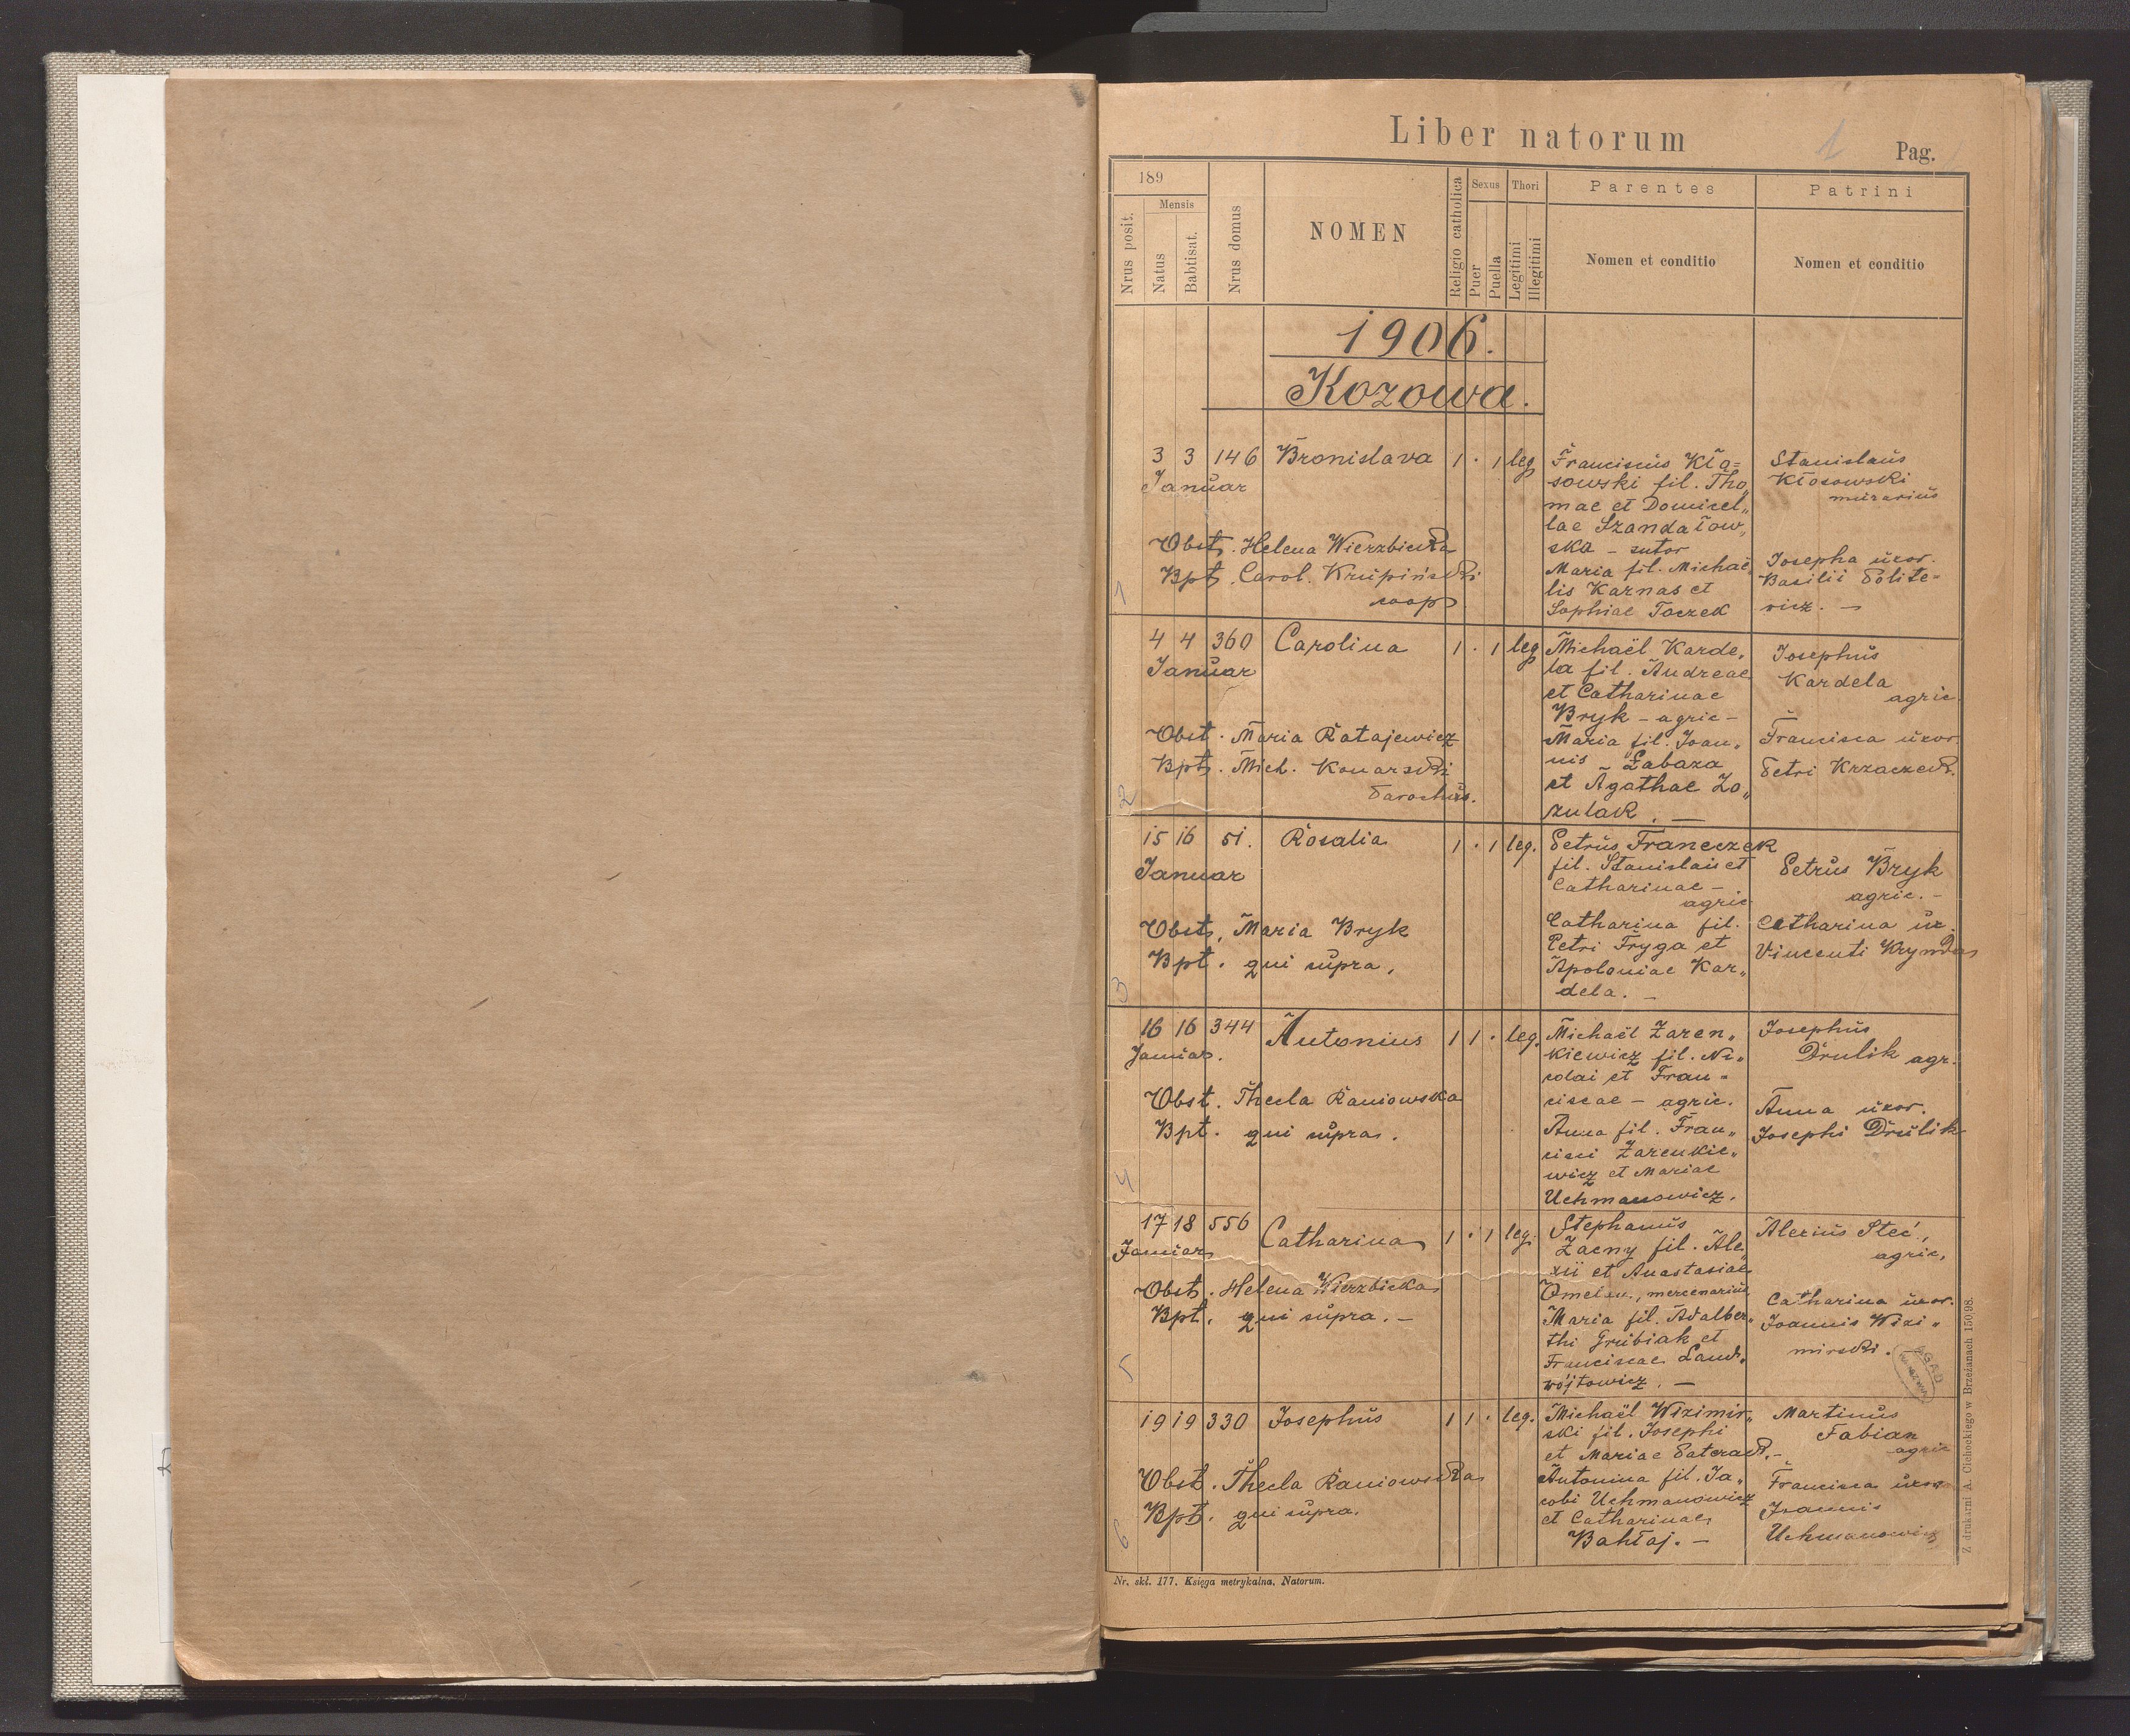 Liber natorum
1 Pag.
189
Mensis
Nrus posit.
Natus
Babtisat.
Nrus domus
NOMEN
Religio catholica
Sexus
Puer
Puella
Thori
Legitimi
Illegitimi
Parentes
Nomen et conditio
Patrini
Nomen et conditio
1906.
Kozowa.
3 3 146 Bronislava 1 . 1 leg
Januar
Obst. Helena Wierzbicka
Bpt. Carol. Krupiński
coop
1
Franciscus Kło=
sowski fil. Tho„
mae et Domicel„
lae Szandałow„
ska - sutor
Maria fil. Michaë„
lis Karnas et
Sophiae Toczek
Stanislaus
Kłosowski
murarius
Josepha uxor.
Basilii Polite=
wicz. -
4 4 360 Carolina 1 . 1 leg
Januar
Obst. Maria Ratajewicz
Bpt. Mich. Konarski
Parochus.
2
Michaël Karde„
la fil. Andreae
et Catharinae
Bryk - agric -
Maria fil. Joan„
nis Łabaza
et Agathae Zo„
zulak. -
Josephus
Kardela
agric.
Francisca uxor.
Petri Krzaczek.
15 16 51. Rosalia 1 . 1 leg.
Januar
Obst. Maria Bryk
Bpt. qui supra.
3
Petrus Franeczek
fil. Stanislai et
Catharinae -
agric
Catharina fil.
Petri Fryga et
Apoloniae Kar„
dela. -
Petrus Bryk
agric. -
Catharina ux.
Vincenti
16 16 344 Antonius 1 1 . leg.
Januar.
Obst. Thecla Raniowska
Bpt. qui supra.
4
Michaël Zaren„
kiewicz fil. Ni„
colai et Fran=
ciscae - agric.
Anna fil. Fran„
cisci Zarenkie„
wicz et Mariae
Uchmanowicz.
Josephus
Drulik agr.
Anna uxor.
Josephi Drulik
17 18 556 Catharina 1 . 1 leg.
Januar
Obst. Helena Wierzbicka
Bpt. qui supra. -
5
Stephanus
Zacny fil. Ale„
xii et Anastasiae
mercenarius
Maria fil. Adalber„
thi Grubiak et
Franciscae Land„
wójtowicz. -
Alexius Steć,
agric,
Catharina uxor.
Joannis Wizi„
mirski.
AGAD
WARSZAWA
19 19 330 Josephus 1 1 . leg.
Obst. Thecla Raniowska
Bpt. qui supra.
6
Michaël Wizimir„
ski fil. Josephi
et Mariae Paterak. -
Antonina fil. Ja„
cobi Uchmanowicz
et Catharinae
Bahłaj. -
Martinus
Fabian
agric
Francisca uxor
Joannis
Uchmanowicz
Nr. skł. 177. Księga metrykalna. Natorum.
Z drukarni A. Cichockiego w Brzeżanach 150/98.